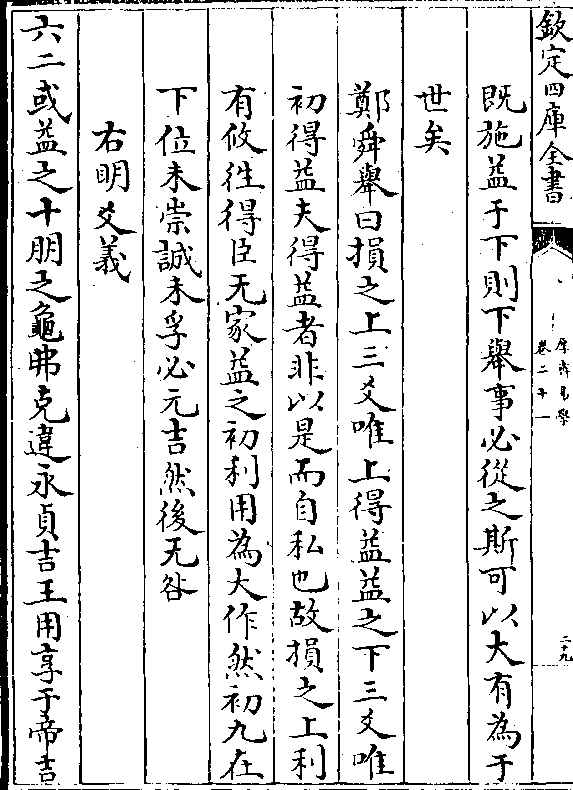 欽定四庫全書
厚齋易學
卷二十一
二九
既施益于下則下舉事必從之斯可以大有為于
世矣
鄭舜舉曰損之上三爻唯上得益益之下三爻唯
初得益夫得益者非以是而自私也故損之上利
有攸徃得臣无家益之初利用為大作然初九在
下位未崇誠未孚必元吉然後无咎
右明爻義
六二或益之十朋之龜弗克違永貞吉王用享于帝吉